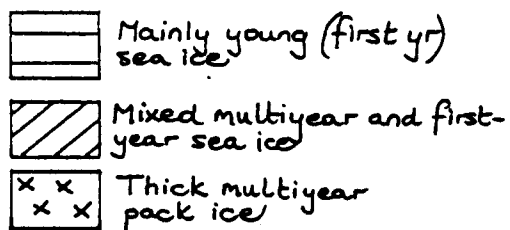 Mainly young (first yr)
sea ice
Mixed multiyear and first-
year sea ice
Thick multiyear
pack ice